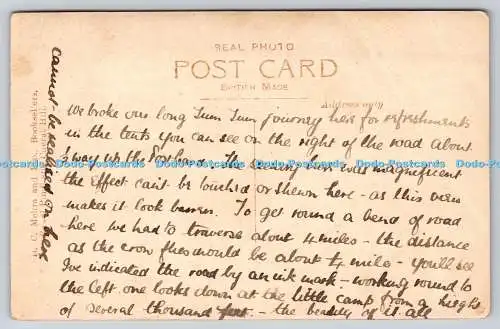 REAL PHOTO
POST CARD
BRITISH MADE
Address only
We broke our long Tum Tum journey here for refreshments
in the tents you can see on the right of the road about
½ way up the Postcard. The scenery here was magnificent
the effect can't be touched or shewn here - as this view
makes it look barren. To get round a bend of road
here we had to traverse about 4 miles - the distance
as the crow flies would be about ¼ mile - you'll see
I've indicated the road by an ink mark - working round to
the left one looks down at the little camp from a height
of several thousand feet - the beauty of it all
cannot be realised on here
Mehra and Booksellers,
Dodo-Postcards Dodo-Postcards Dodo-Postcards Dodo-Postcards Dodo-Postcards